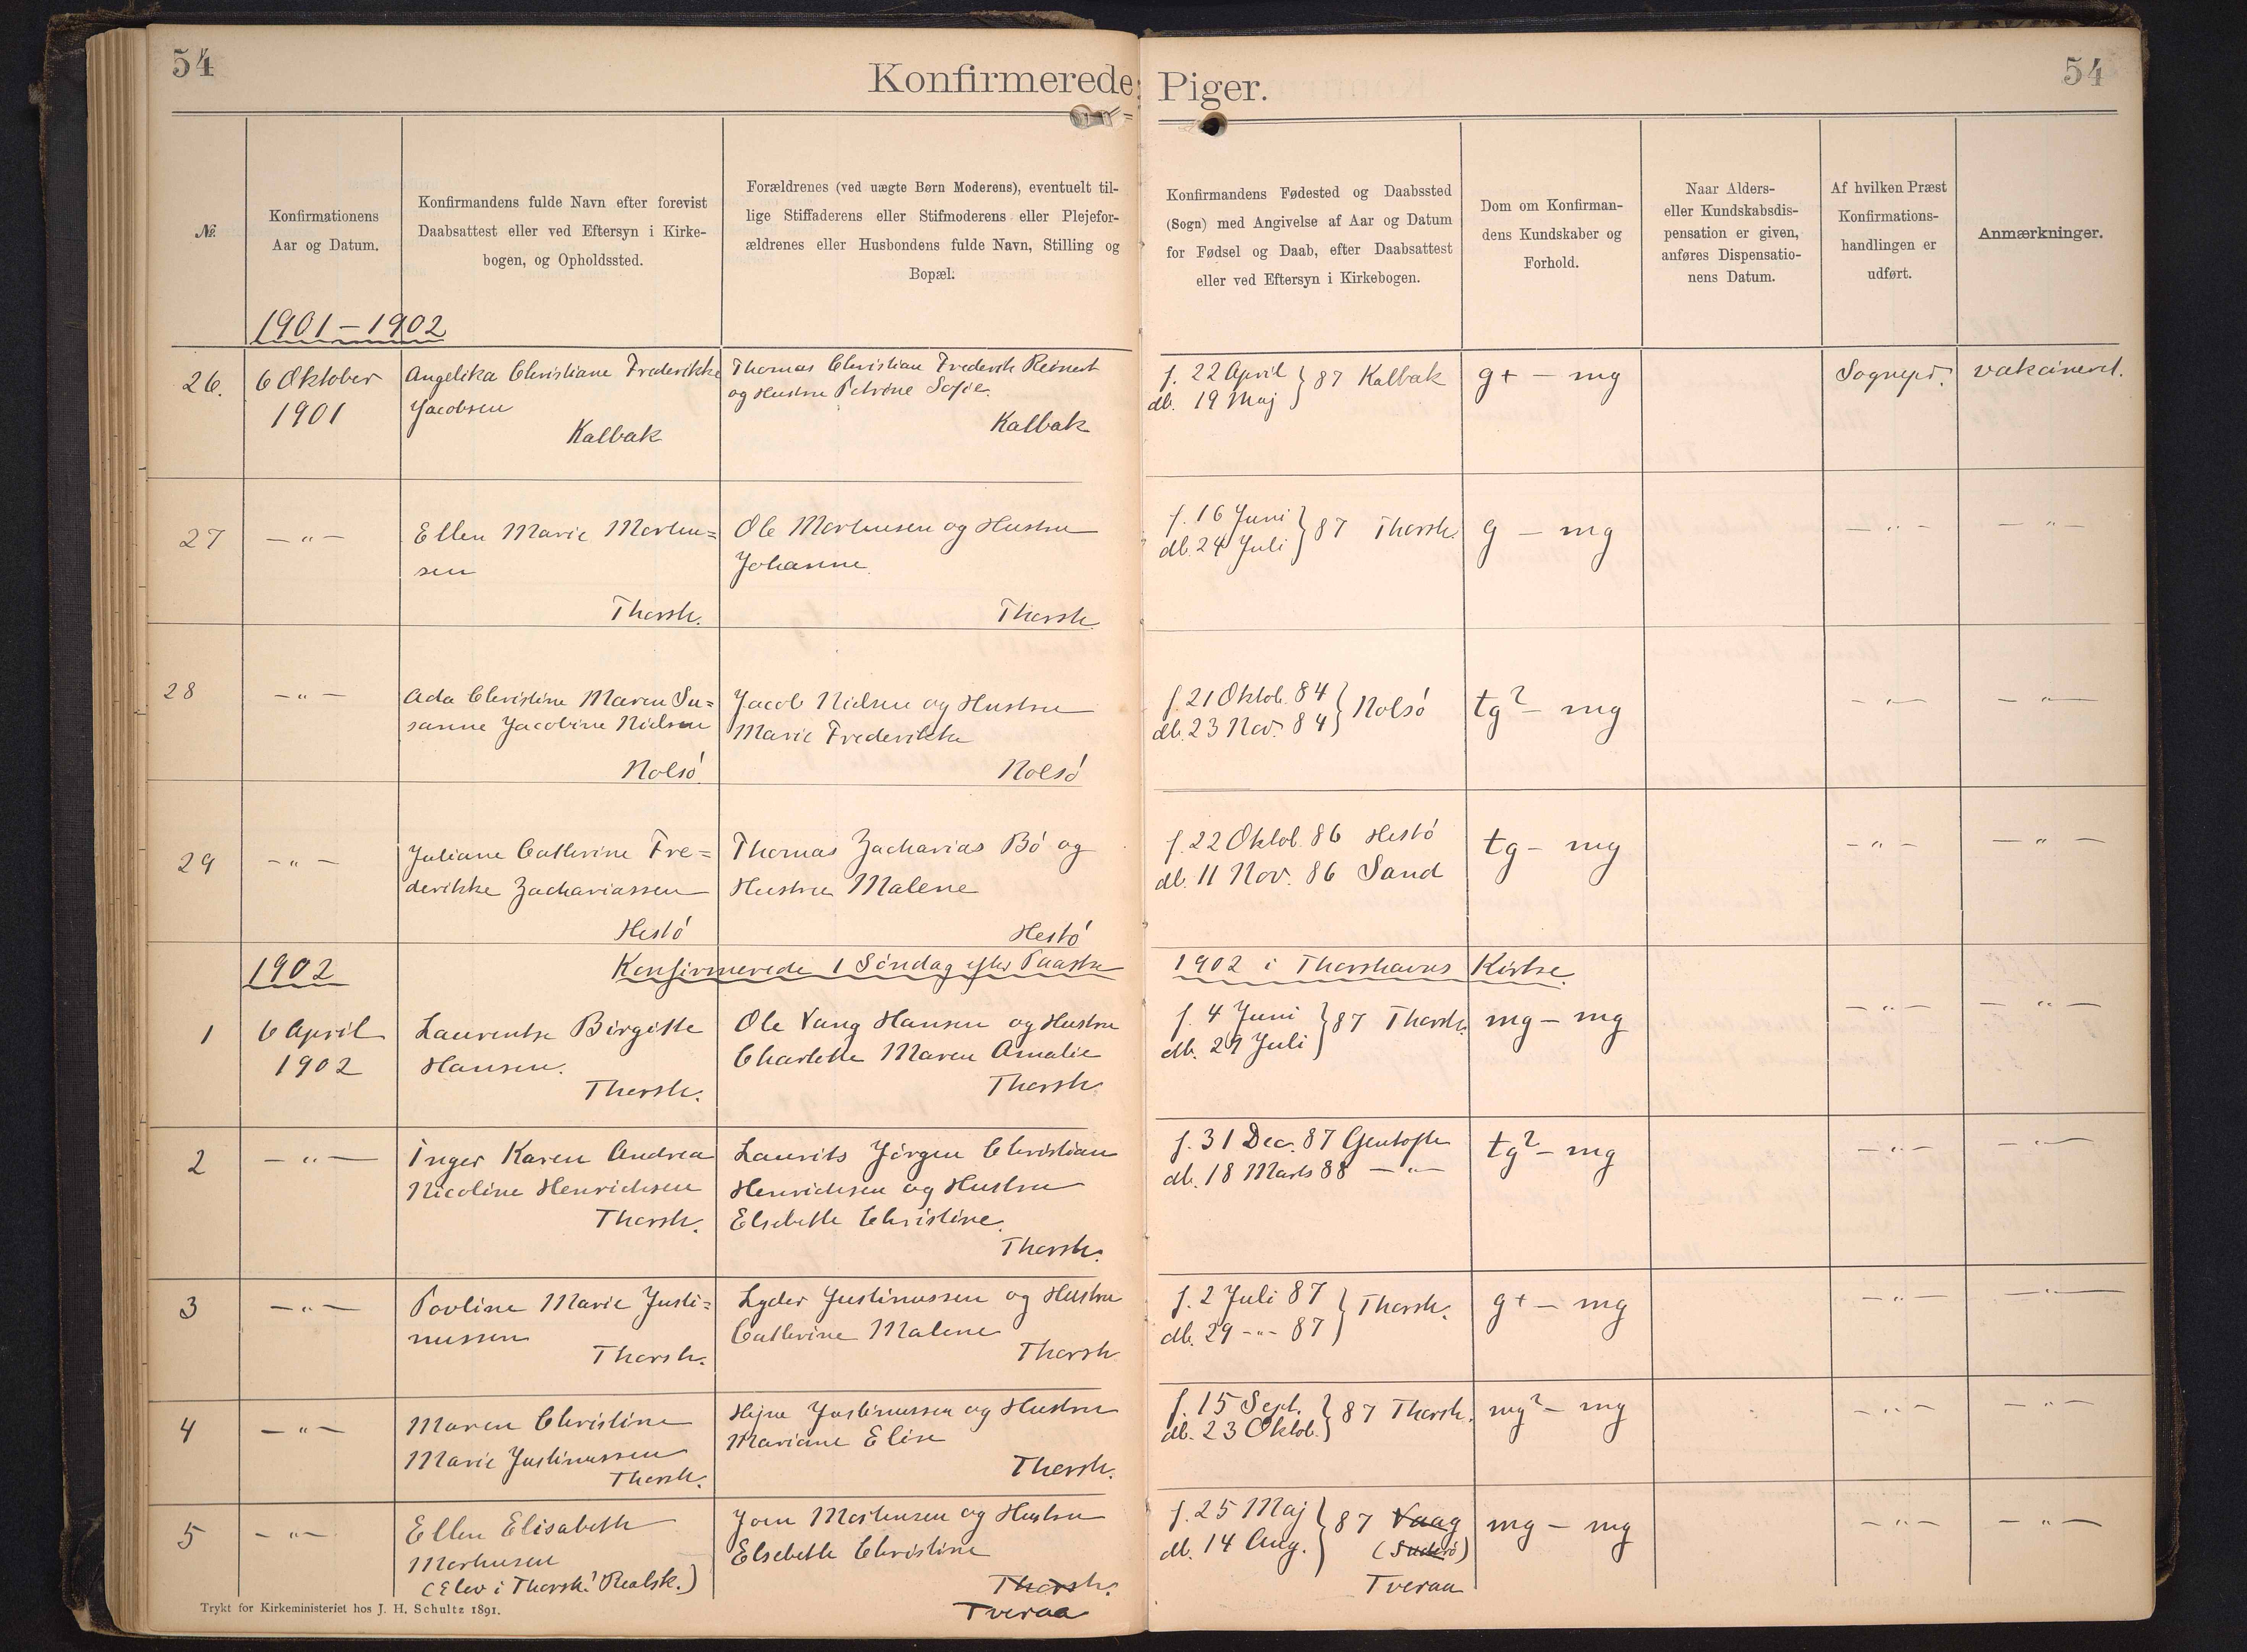 54
Konfirmerede Piger.
54
№.
Konfirmationens
Aar og Datum.
Konfirmandens fulde Navn efter forevist
Daabsattest eller ved Eftersyn i Kirke-
bogen, og Opholdssted.
Forældrenes (ved uægte Børn Moderens), eventuelt til-
lige Stiffaderens eller Stifmoderens eller Plejefor-
ældrenes eller Husbondens fulde Navn, Stilling og
Bopæl.
Konfirmandens Fødested og Daabssted
(Sogn) med Angivelse af Aar og Datum
for Fødsel og Daab, efter Daabsattest
eller ved Eftersyn i Kirkebogen.
Dom om Konfirman-
dens Kundskaber og
Forhold.
Naar Alders-
eller Kundskabsdis-
pensation er given,
anføres Dispensatio-
nens Datum.
Af hvilken Præst
Konfirmations-
handlingen er
udført.
Anmærkninger.
1901-1902
26.
6 Oktober
1901
Angelika Christiane Frederikke
Jacobsen
Kalbak
Thomas Christian Frederik Reinert
og Hustru Petrine Sofie.
Kalbak
f. 22 April
db. 19 Maj } 87 Kalbak
g+ - mg
Sognepr.
vakcineret.
27
- " -
Ellen Marie Morten=
sen
Thorsh.
Ole Mortensen og Hustru
Johanne
Thorsh.
f. 16 Juni
db. 24 Juli } 87 Thorsh.
g - mg
- " -
- " -
28
- " -
Ada Christine Maren Su=
sanne Jacobine Nielsen
Nolsó
Jacob Nielsen og Hustru
Marie Frederikke
Nolsó
f. 21 Oktob. 84
db. 23 Nov. 84 } Nolsó
tg? - mg
- " -
- " -
29
- " -
Juliane Cathrine Fre=
derikke Zachariassen
Hestó
Thomas Zacharias Bó og
Hustru Malene
Hestó
f. 22 Oktob. 86 Hestó
db. 11 Nov. 86 Sand
tg - mg
- " -
- " -
1902
Konfirmerede 1 Søndag efter Paaske 1902 i Thorshavns Kirke.
1
6 April
1902
Laurentse Birgitte
Hansen.
Thorsh.
Ole Vang Hansen og Hustru
Charlotte Maren Amalie
Thorsh.
f. 4 Juni
db. 29 Juli } 87 Thorsh.
mg - mg
- " -
- " -
2
- " -
Inger Karen Andrea
Nicoline Henrichsen
Thorsh.
Laurits Jörgen Christian
Henrichsen og Hustru
Elsebeth Christine.
Thorsh.
f. 31 Dec. 87 Gentofte
db. 18 Marts 88 - " -
tg? - mg
- " -
- " -
3
- " -
Povline Marie Justi=
nussen
Thorsh.
Lyder Justinussen og Hustru
Cathrine Malene
Thorsh
f. 2 Juli 87
db. 29 - " - 87 } Thorsh.
g+ - mg
- " -
- " -
4
- " -
Maren Christine
Marie Justinussen
Thorsh.
Justinussen og Hustru
Mariane Elise
Thorsh.
f. 15 Sept.
db. 23 Oktob. } 87 Thorsh.
mg? - mg
- " -
- " -
5
- " -
Ellen Elisabeth
Mortensen
(Elev i Thorsh. Realsk.)
Joen Mortensen og Hustru
Elsebeth Christine
Thorsh.
Tveraa
f. 25 Maj
db. 14 Aug. } 87 Vaag
(Suderö)
Tveraa
mg - mg
- " -
- " -
Trykt for Kirkeministeriet hos J. H. Schultz 1891.